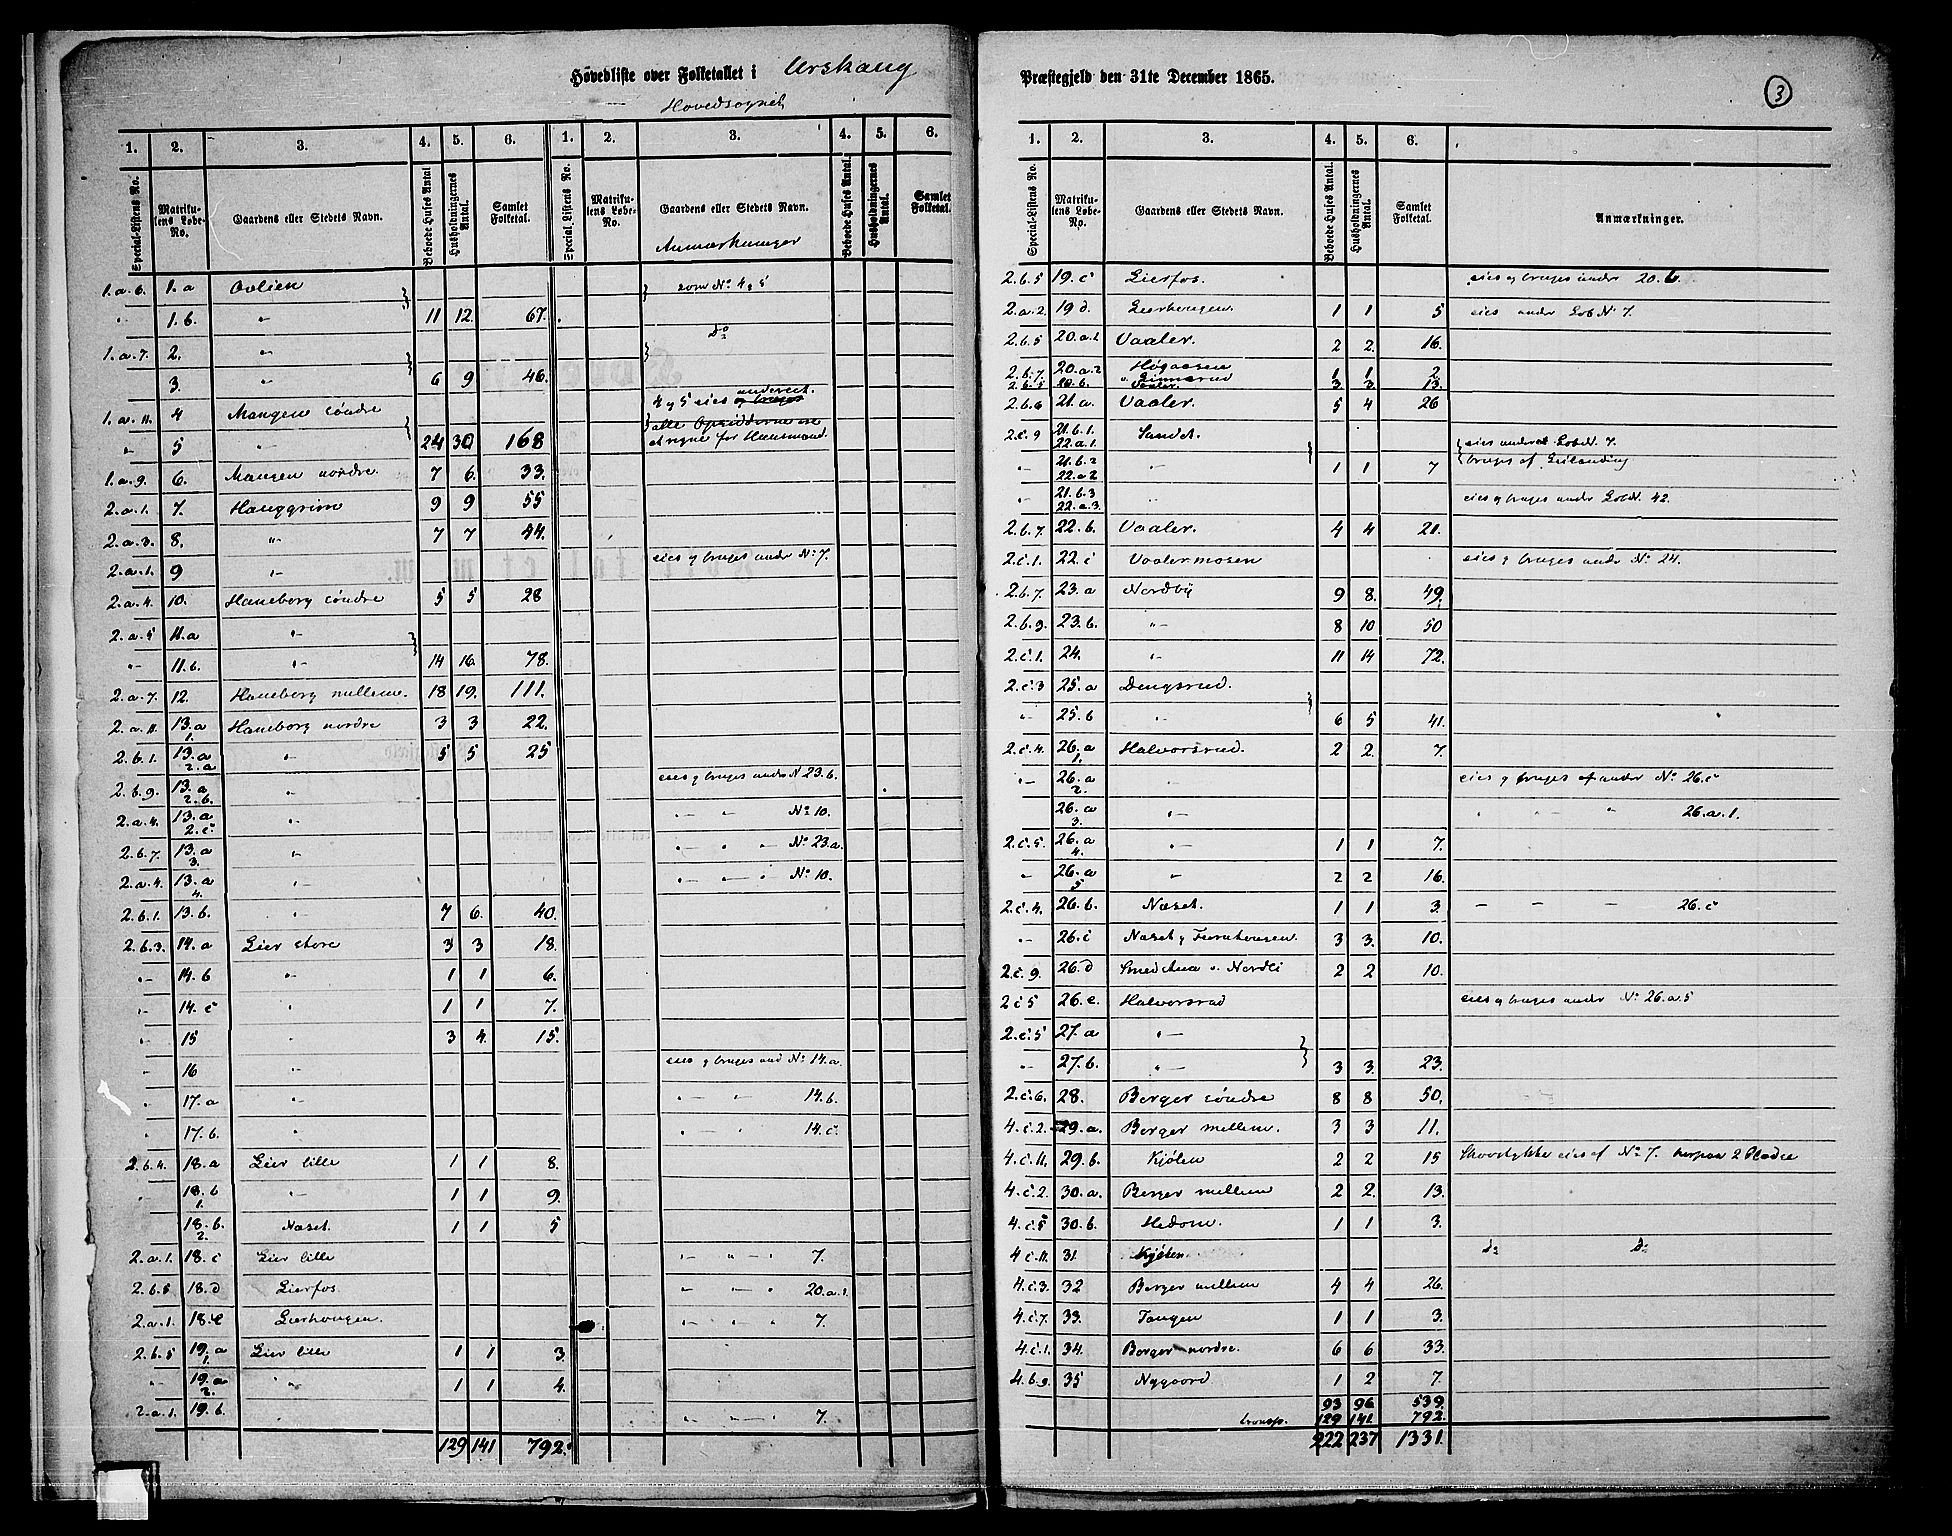 Hovedliste over Folketallet i Urskaug
Hovedsognet
1. 2. 3. 4. 5. 6. 1. 2. 3. 4. 5. 6.
Special-Listens No. Matrikulens Løbe-No. Gaardens eller Stedets Navn. Beboede Huses Antal Husholdningernes Antal. Samlet Folketal. Special-Listens No. Matrikulens Løbe-No. Gaardens eller Stedets Navn. Anmærkninger Beboede Huses Antal. Husholdningernes Antal. Samlet Folketal.
1.a.6. 1.a Ovlien } } som No 4 & 5
" 1.b. " 11 12 67.
do
1.a.7. 2. " } }
3. " 6 9 46.
1.a.11. 4 Mangen søndre } 4 og 5 eies og bruges
" 5 " 24 30 168
1.a.9. 6. Mangen nordre 7 6. 33.
2.a.1. 7. Hauggrim 9 9 55
2.a.3. 8. " 7 7 44.
2.a.1. 9 " eies og bruges under No 7.
2.a.4. 10. Haneborg søndre 5 5 28
2.a.5 11.a " }
" 11.b. " 14 16. 78.
2.a.7. 12. Haneborg mellem. 18 19. 111.
2.a.11. 13.a 1. Haneborg nordre 3 3 22.
2.b.1. 13.a 2.a " 5 5 25
2.b.9. 13.a 2.b. " eies og bruges under N 23.b.
2.a.4. 13.a 2.c " " " No 10.
2.b.7. 13.a 3. " " " " No 23.a.
2.a.4. 13.a 4. " " " " No 10.
2.b.1. 13.b. " 7 6. 40.
2.b.3. 14.a Lier store 3 3 18.
" 14.b " 1 1 6.
" 14.c " 1 1 7.
" 15 " 3 4. 15.
" 16 " eies og bruges und No 14.a.
" 17.a " " " 14.b.
" 17.b. " " " 14.c.
2.b.4. 18.a Lier lille 1 1 8.
" 18.b 1. " 1 1 9.
18.b. 2. Næset. 1 1 5
2.a.1. 18.c Lier lille " " " 7.
2.b.5 18.d Lierfos. " " " 20.a.1.
2.a.1. 18.e Lierhougen. " " " 7.
2.b.5 19.a 1. Lier lille 1 1 3.
" 19.a 2. " " 1 1 4.
2.a.1. 19.b. " " " " 7.
129 141 792.
Præstegjeld den 31te December 1865.
3
1. 2. 3. 4. 5. 6.
Special-Listens No. Matrikulens Løbe-No. Gaardens eller Stedets Navn. Beboede Huses Antal. Husholdningernes Antal. Samlet Folketal. Anmærkninger.
2.b.5 19.c Lierfos. eies og bruges under 20.b.
2.a.2. 19 d. Lierhougen. 1 1 5 eies under Løb N 7.
2.b.5 20.a.1. Vaaler. 2 2. 16.
2.b.7. 20.a.2 Høgaasen 1 1 2
2.b.5 20.b. Vaaler. 3 3. 13.
2.b.6 21.a. Vaaler. 5 4 26
2.c.9 21.b.1. 22.a.1. Sandet. } { eies under Løb N. 7.
" 21.b.2 22.a.2 " 1 1 7 bruges af
" 21.b.3 22.a.3. " eies og bruges under Løb N. 42.
2.b.7. 22.b. Vaaler. 4 4 21.
2.c.1. 22.c Vaalermosen eies og bruges under No 24.
2.b.7. 23.a Nordby 9 8. 49.
2.b.9. 23.b. " 8 10 50
2.c.1. 24. " 11 14 72.
2.c.3 25.a Dengsrud. }
" 25.b " 6 5 41.
2.c.4. 26.a 1. Halvorsrud. 2 2. 7.
" 26.a 2. " eies og bruges af under No 26.c
26.a 3. " " " " 26.a.1.
2.c.5. 26.a 4. " 1 1 7.
" 26.a 5 " 2 2 16.
2.c.4. 26.b. Næset. 1 1 3. " " " 26.c
" 26.c Næset og 3 3. 10.
2.c.9. 26.d Nordli 2 2 10.
2 c 5 26.e. Halvorsrud eies og bruges under No 26.a.5
2.c.5 27.a " }
" 27.b. " 3 3. 23.
2.c.6. 28. Berger søndre 8 8 50.
4.c.2. 29.a. Berger mellem. 3 3 11.
4.c.11. 29.b. Kjølen 2 2 15 Skovstykke eies af No 7. herpaa 2 Pladse
4.c.2. 30.a. Berger mellem 2 2. 13.
4.c.5 30.b. Hedom. 1 1 3.
4 c 11. 31. Kjølen do do
4.c.3. 32 Berger mellem 4 4 26.
4.c.7. 33. Tangen 1 1 3.
4.c.1. 34. Berger nordre. 6 6 33.
4.b.9. 35 Nygaard 1 2 7.
93 96 539.
transp. 129 141. 792.
222 237 1331.